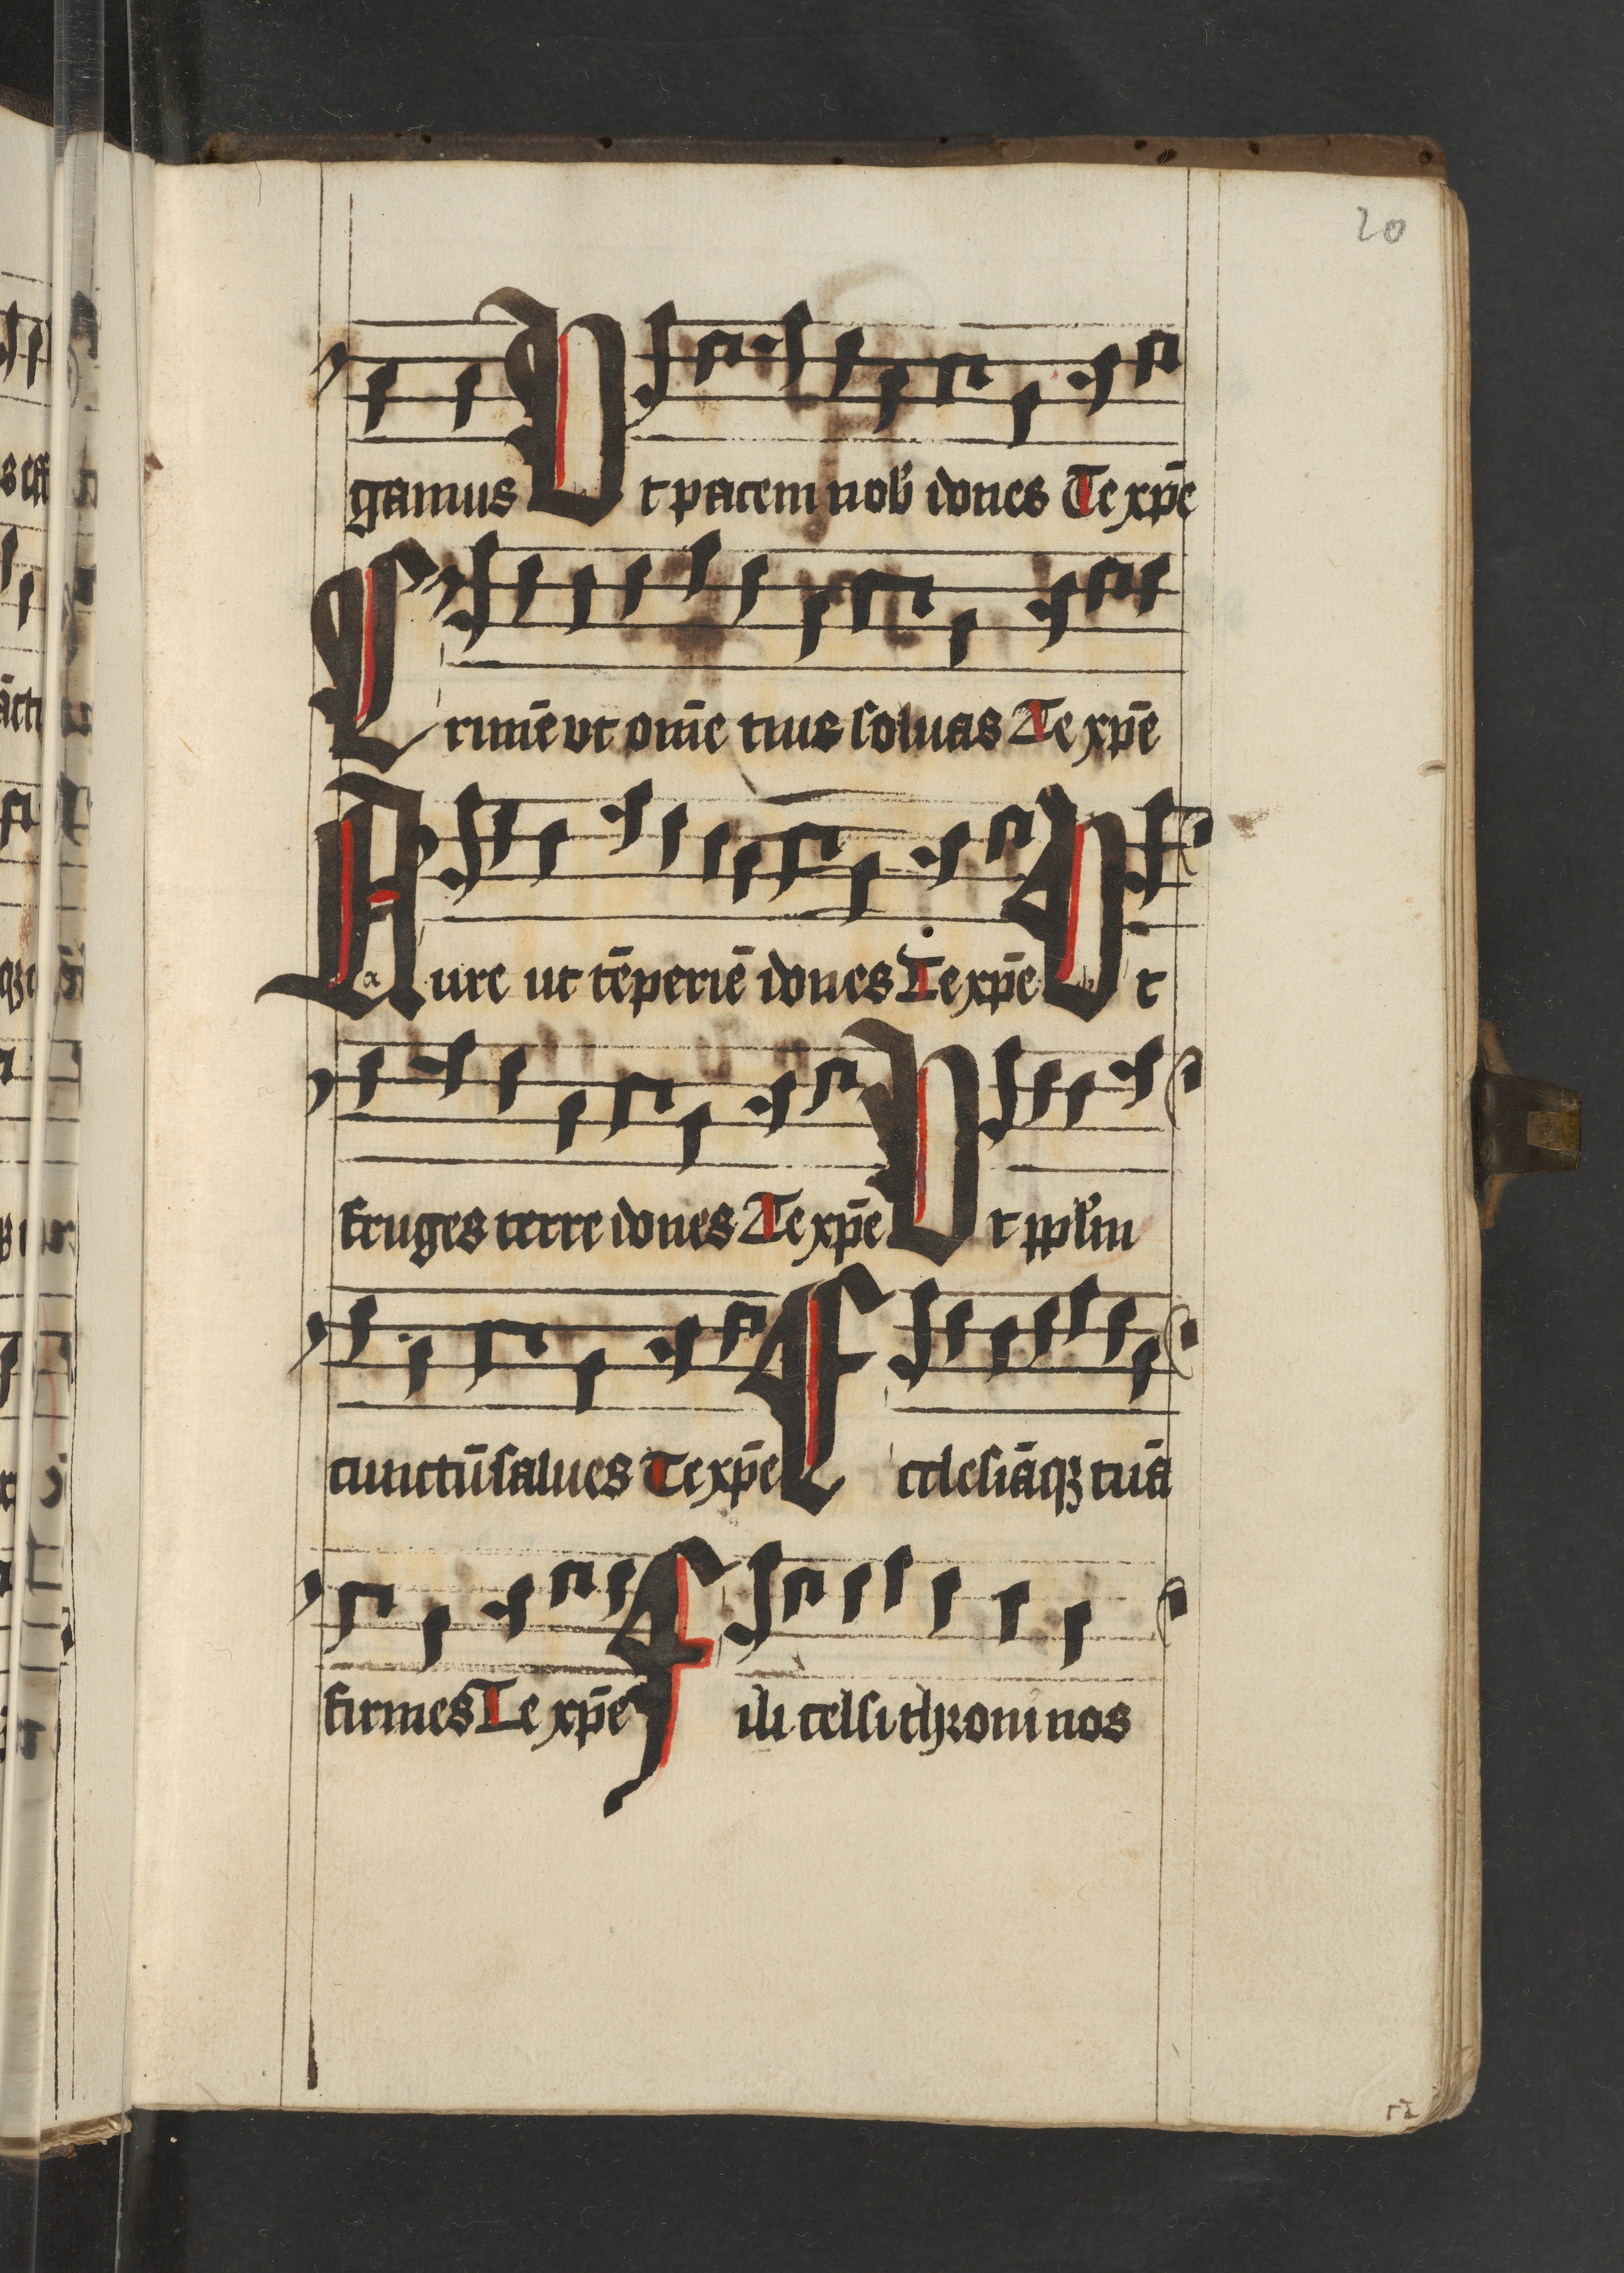 20
gamus Ut pacem nob̛ dones Te xp̄e
Crimē ut om̄e tuis soluas Te xp̄e
Aure ut tēperiē dones Te xp̄e Ut
fruges terre dones Te xp̄e Ut pp̄lm
cunctū salues Te xp̄e Ecclesiāqꝫ tuā
firmes Te xp̄e Fili celsithroni nos